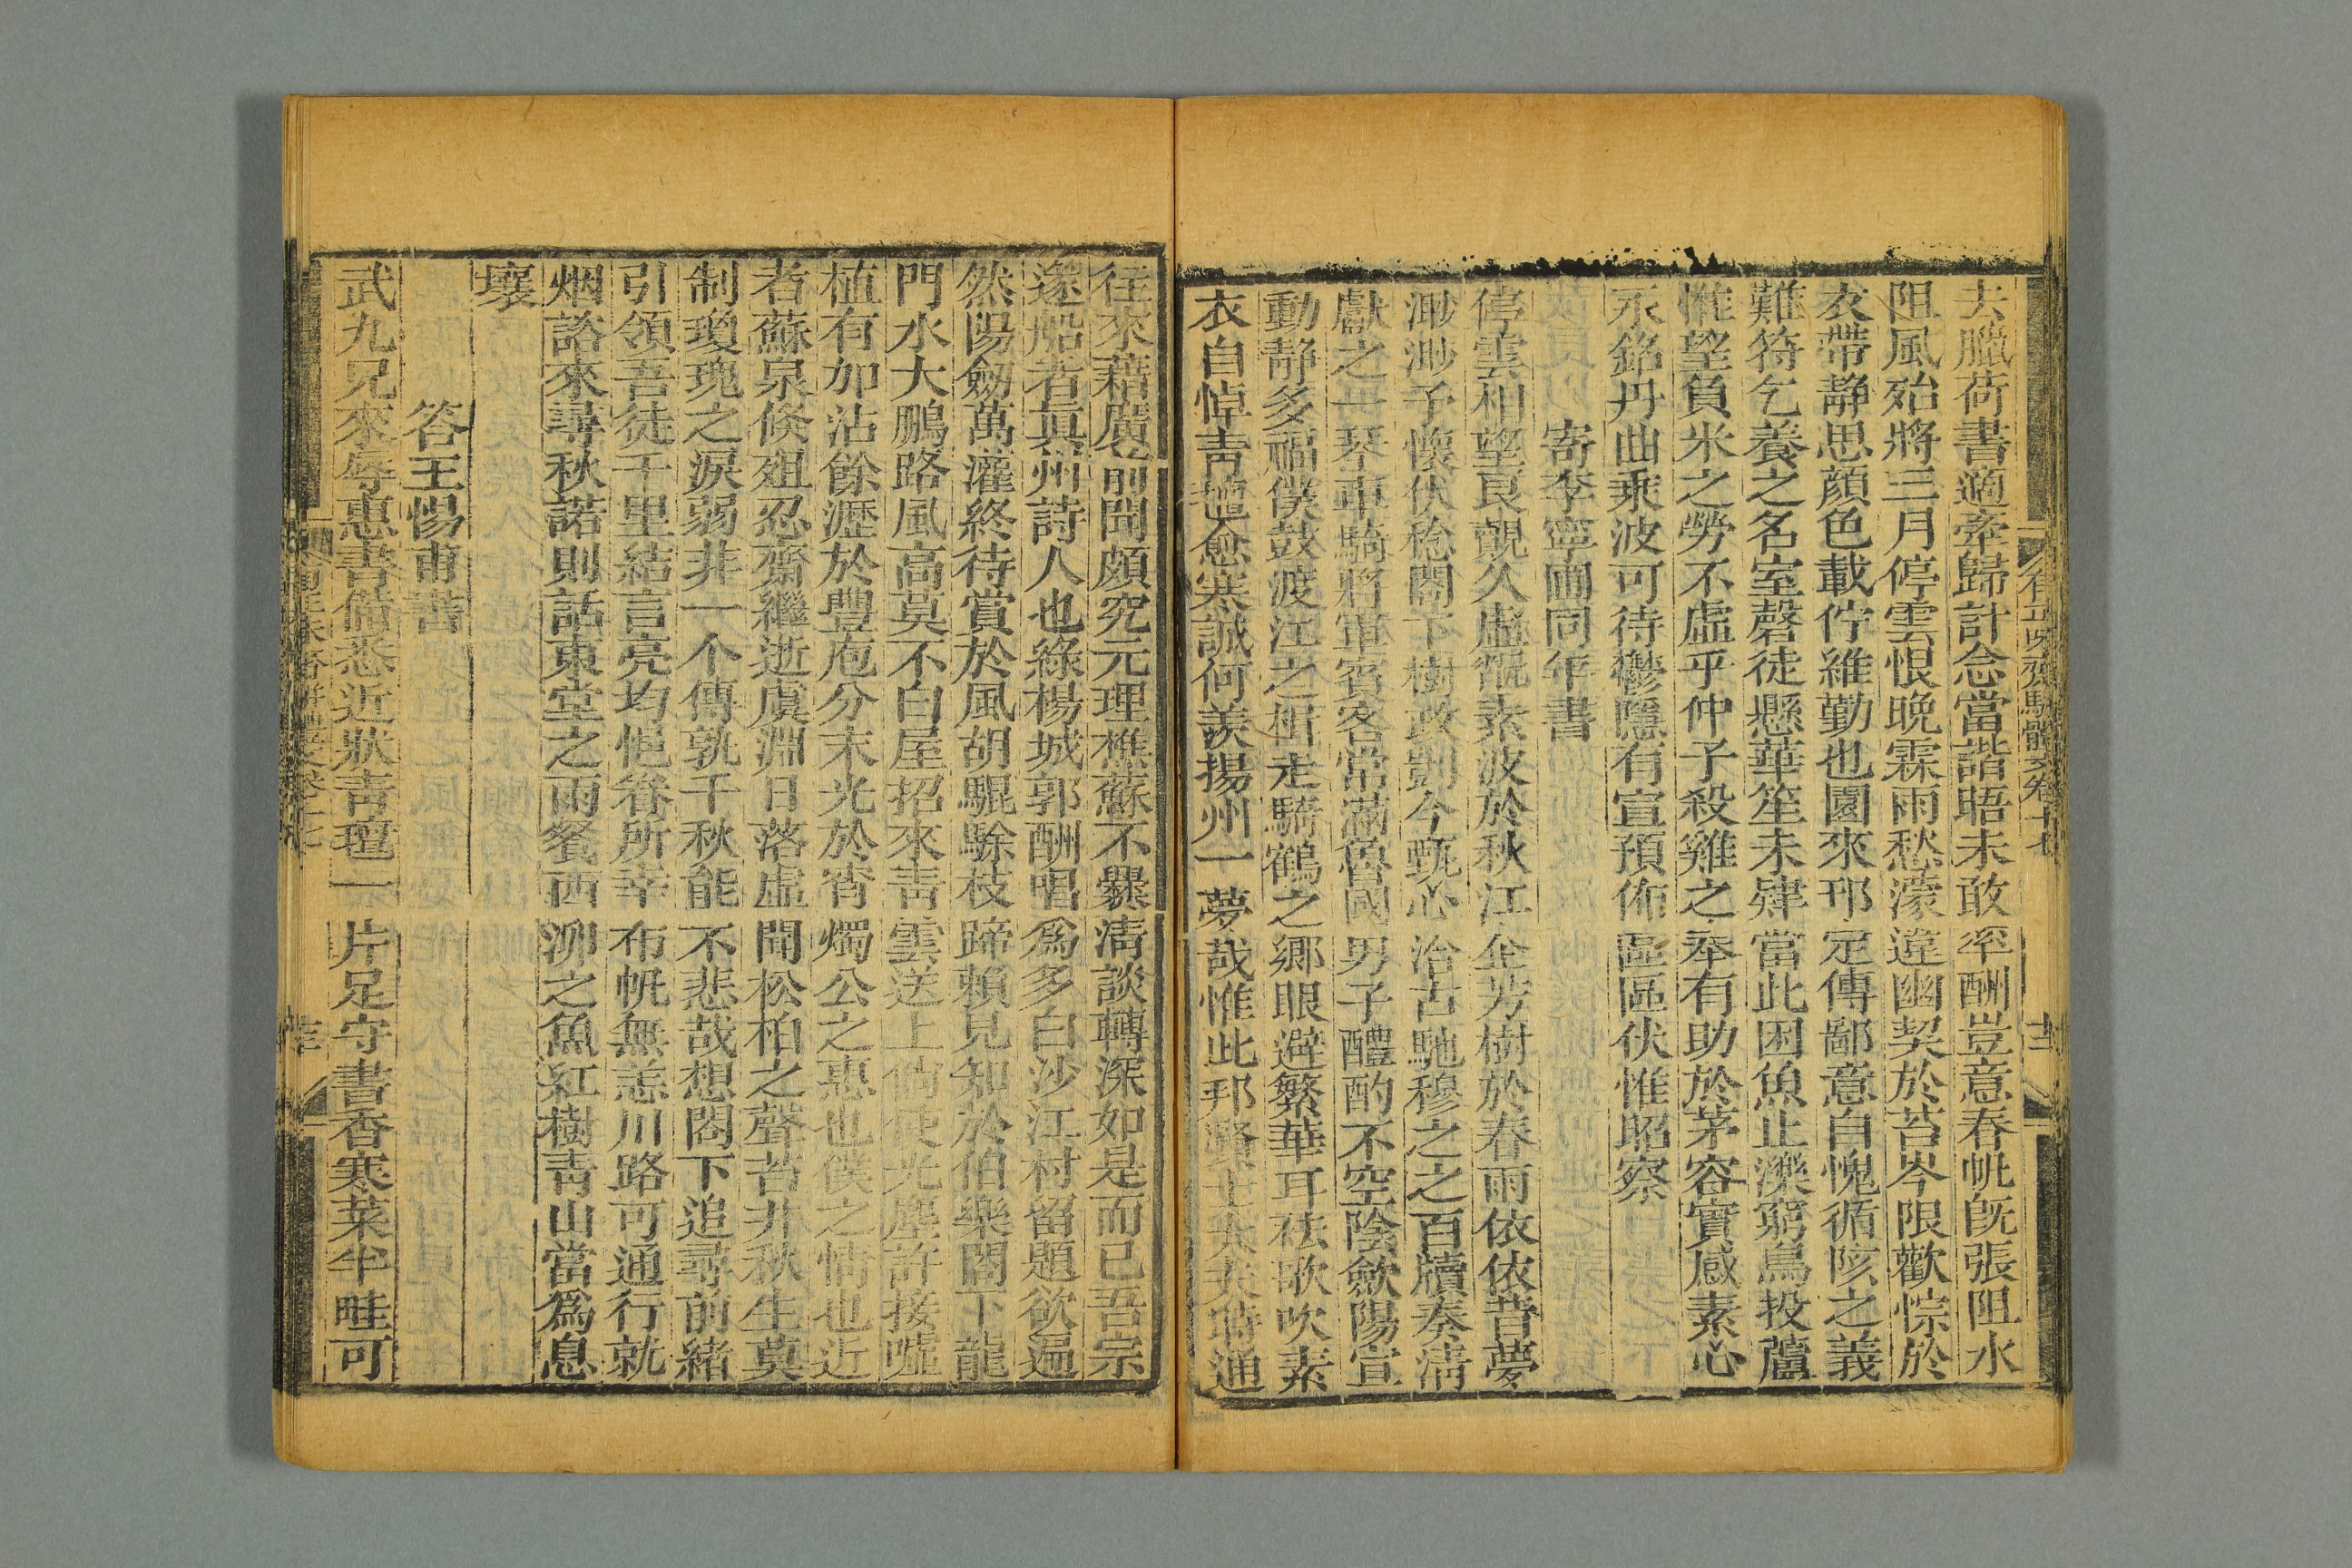 去臘荷書適牽歸計念當諧晤未敢率酬豈意春帆旣張阻水
阻風殆將三月停雲恨晚霖雨愁濛違幽契於苔岑限歡悰於
衣帶靜思顔色載佇維勤也園來邗定傳鄙意自愧循陔之義
難符乞養之名室磬徒懸華笙未肄當此困魚止濼窮鳥投蘆
惟望負米之勞不虛乎仲子殺雞之奉有助於茅容實感素心
永銘丹曲乘波可待鬱隱有宣預佈區區伏惟昭察
寄李寧圃同年書
停雲相望良覿久虛慨素波於秋江企芳樹於春雨依依昔夢
渺渺予懷伏稔閣下樹政劉今甄心冶古馳穆之之百牘奏清
獻之一琴車騎將軍賓客常滿魯國男子醴酌不空陰歛陽宣
動靜多福僕鼓渡江之楫走騎鶴之鄉眼避繁華耳祛歌吹素
衣自悼靑氊愈寒誠何羨揚州一夢哉惟此邦賢士大夫時通
有正味齋駢體文卷十七
往來藉廣前聞頗究元理樵蘇不爨清談轉深如是而已吾宗
邃船者真州詩人也綠楊城郭酬唱爲多白沙江村留題欲遍
然陽劒萬灌終待賞於風胡騉駼枝蹄賴見知於伯樂閣下龍
門水大鵬路風高莫不白屋招來靑雲送上倘使光塵許接噓
植有加沾餘瀝於豐庖分末光於宵燭公之惠也僕之情也近
者蘇泉倏殂忍齋繼逝虞淵日落虛聞松柏之聲苔井秋生莫
制瓊瑰之淚弱非一个傳孰千秋能不悲哉想閣下追尋前緒
引領吾徒千里結言亮均悒眷所幸布帆無恙川路可通行就
烟艙來尋秋諾則話東堂之雨餐西泖之魚紅樹靑山當爲息
壤
答王惕甫書
武九兄來辱惠書備悉近狀靑氊一片足守書香寒菜半畦可